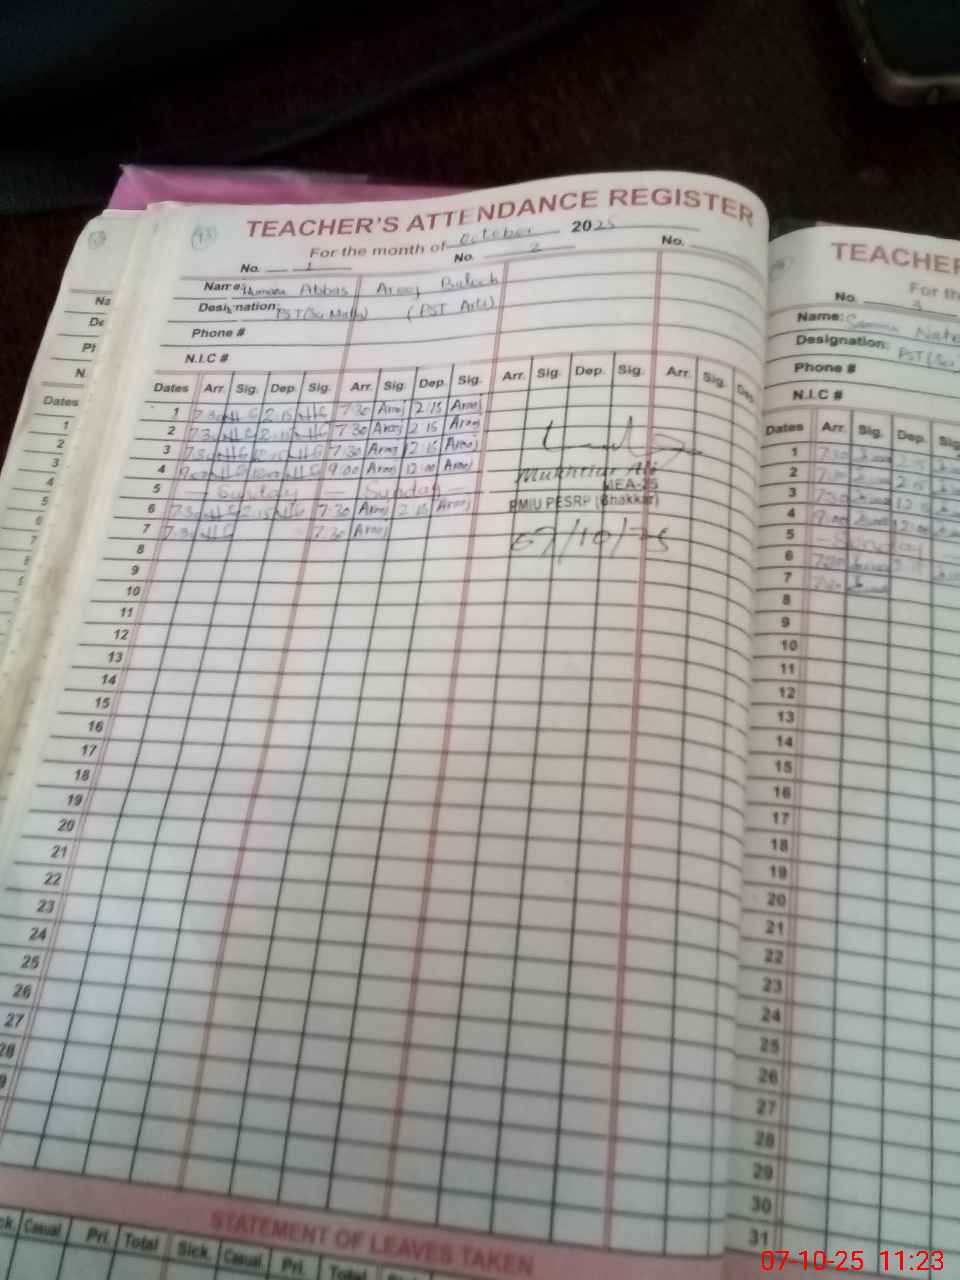 TEACHER'S ATTENDANCE REGISTER
For the month of October 2025
No. 1 No. 2 No.
Name: Humara Abbas Arooj Baloch
Designation: PST (Sci Math) (PST Arts)
Phone #
N.I.C #
Dates Arr. Sig. Dep. Sig. Arr. Sig. Dep. Sig. Arr. Sig. Dep. Sig. Arr. Sig. Dep
1 7:30 2:15 7:30 Arooj 2:15 Arooj
2 7:30 2:15 7:30 Arooj 2:15 Arooj
3 7:30 7:30 Arooj 12:15 Arooj
4 9:00 12:00 9:00 Arooj 12:00 Arooj
5 — Sunday — Sunday —
6 7:30 2:15 7:30 Arooj 2:15 Arooj
7 7:30 7:30 Arooj
8
9
10
11
12
13
14
15
16
17
18
19
20
21
22
23
24
25
26
27
28
9
Mukhtiar Ali
MEA-25
PMIU PESRP (Bhakkar)
07/10/25
STATEMENT OF LEAVES TAKEN
ck. Casual Pri. Total Sick. Casual Pri. Total
TEACHER
For th
No. 3
Name:
Designation: PST (Sci
Phone #
N.I.C #
Dates Arr. Sig. Dep. Sig
1 7:30 2:15
2 7:30 2:15
3 7:30 12:15
4 9:00 12:00
5 — Sunday —
6 7:30 2:15
7 7:30
8
9
10
11
12
13
14
15
16
17
18
19
20
21
22
23
24
25
26
27
28
29
30
31
Na
De
Ph
N.
Dates
1
2
3
4
5
6
7
8
07-10-25 11:23